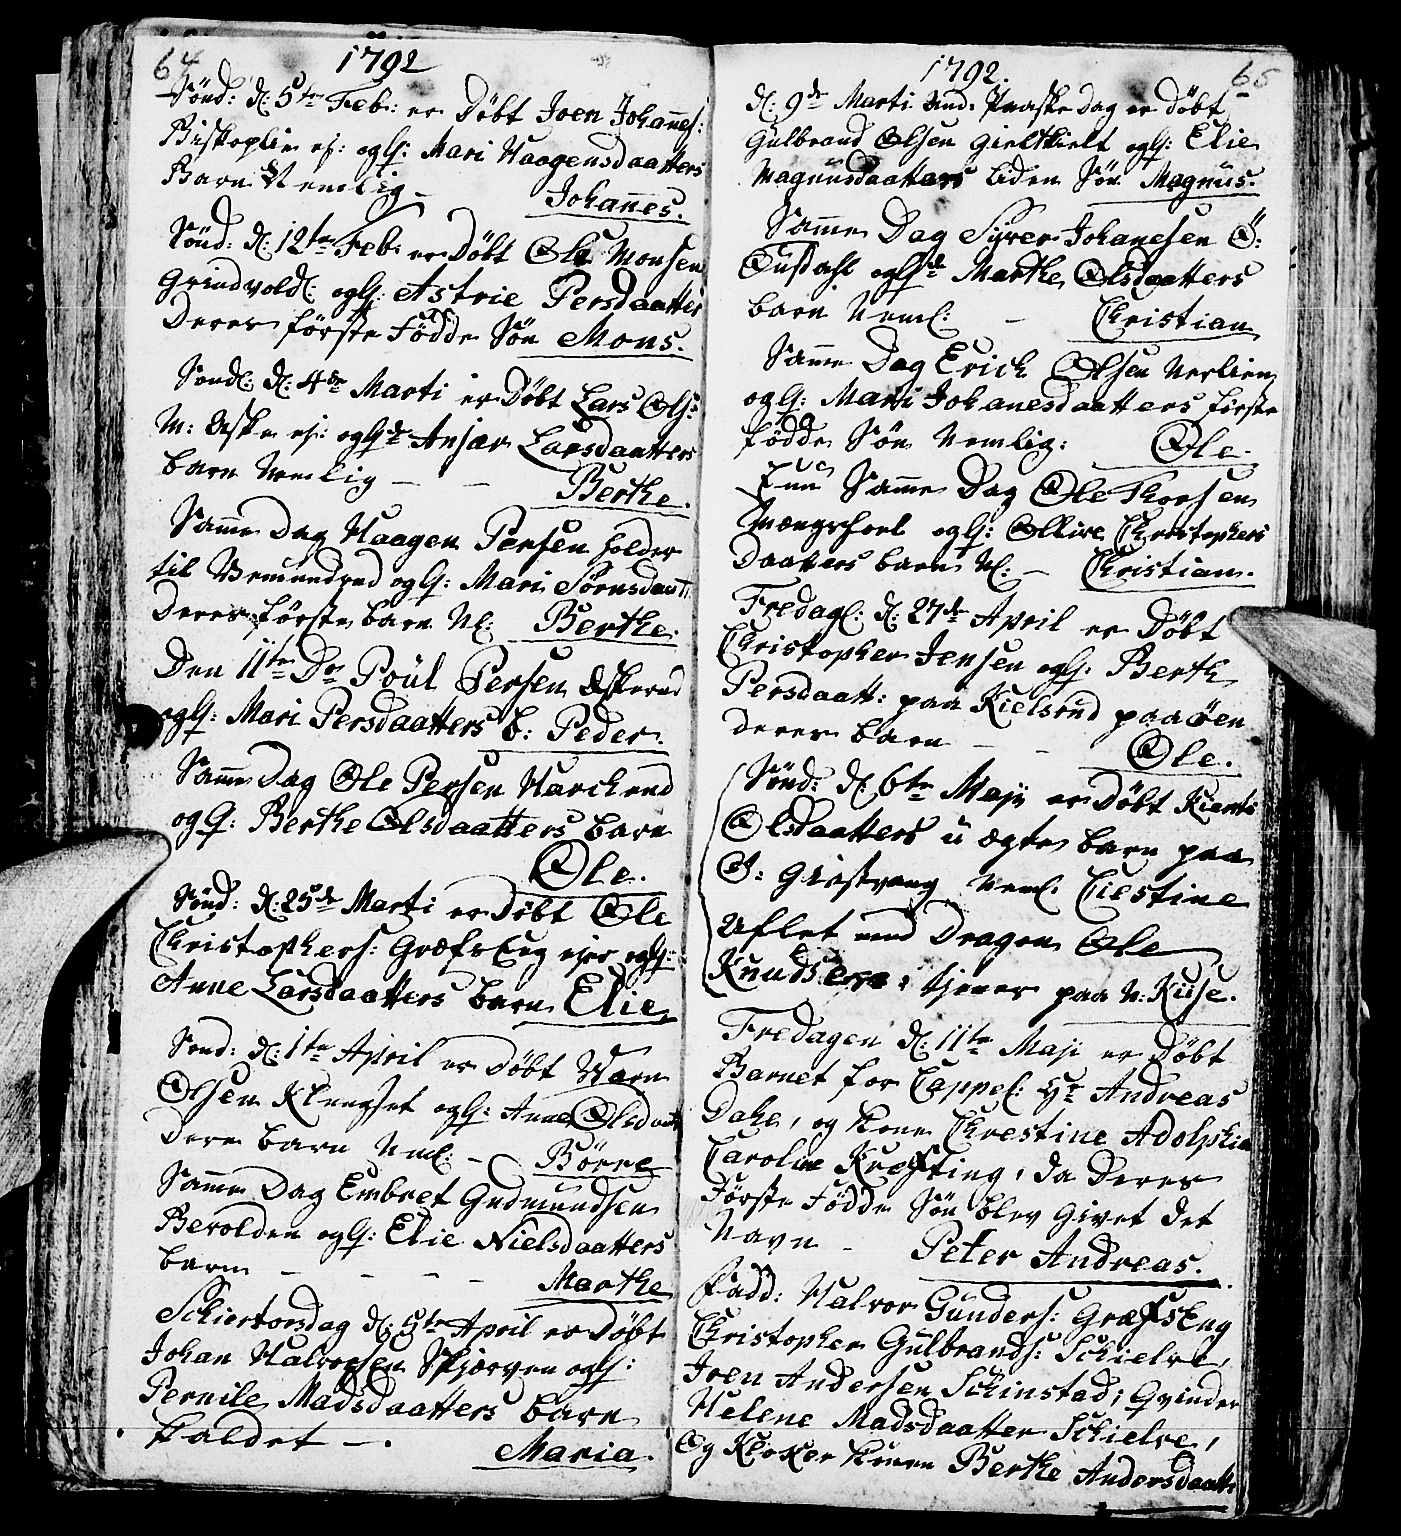 64
1792
Sönd: d: 5te Feb: er Döbt Joen Johannes:
Biskoplie ej: og Hs: Mari Haagensdaatters
Barn Nemlig – Johanes.
Sönd: d: 12te Feb: er Döbt Ole Monsen
Grindvold: og Hs: Astrie Persdaatters
Deres förste Födde Sön Mons.
Sönd: d: 4de Marti er Döbt Lars Ols:
M: Aske ej: og Hs: Anjar Larsdaatters
barn Nemlig – – Berthe.
Samme Dag Haagen Persen holder
til Bemundrud og Hs: Mari Sörnsdaatt:
Deres förste barn Nl: Berthe.
Den 11te Do Poül Persen Askerud
og Hs: Mari Persdaatters b: Peder.
Samme Dag Ole Persen Harckerud
og Hs: Berthe Olsdaatters barn
Ole.
Sönd: d: 25de Marti er Döbt Ole
Christophers: Græfs Eng ejer og Hs:
Anne Larsdaatters barn Elie
Sönd: d: 1te April er Döbt
Olsen Klengset og Hs: Anne Olsdaatt
Deres barn Neml: – Börre
Samme Dag Embret Gudmundsen
Berolden og Hs: Elie Nielsdaatters
barn – – – – Marthe
Schiertorsdag d: 5te April er Döbt
Johan Halvorsen Skjørven og Hs:
Pernile Madsdaatters barn
kaldet – . Maria.
65
1792.
d: 9de Marti 2nd: Paaske Dag er döbt
Gulbrand Olsen Gielskielt og Hs: Elie
Magnusdaatters liden Sön Magnus.
Samme Dag Syver Johanesen Ö:
Ousdahl og Hs: Marthe Olsdaatters
barn Neml: – Christian
Samme Dag Erich Olsen Verlien
og Hs: Mari Johanesdaatters första
födde Sön Nemlig: Ole.
Enu Samme Dag Ole Thorsen
og Hs: Ollive Christophers
Daatters barn Nl: – Christian.
Fredag: d: 27de April er Döbt
Christopher Jensen og Hs: Berth
Persdaatt: paa Kielsrud paa öen
deres barn – – Ole.
Sönd: d: 6te Maji er Döbt Kiersti
Olsdaatters u ægte barn paa
Ö: Giestvang Neml: Chestine
Aflet med Dragon Ole
Knudsen: tjener paa N: Kise.
Fredagen d: 11te Maji er Döbt
Barnet for Cappel: Hr Andreas
Dahe, og Kone Chrestine Adolphia
Caroline Kræfting, da Deres
Förste Födde Sön blev Givet det
Navn – Peter Andreas.
Fadd: Halvor Gunders: Græfs Eng
Christopher Gulbrands: Schielve,
Joen Andersen Schinstad; Qvinder
Helene Madsdaatter Schielve,
Og Kloker konen Berthe Andersdaatt: